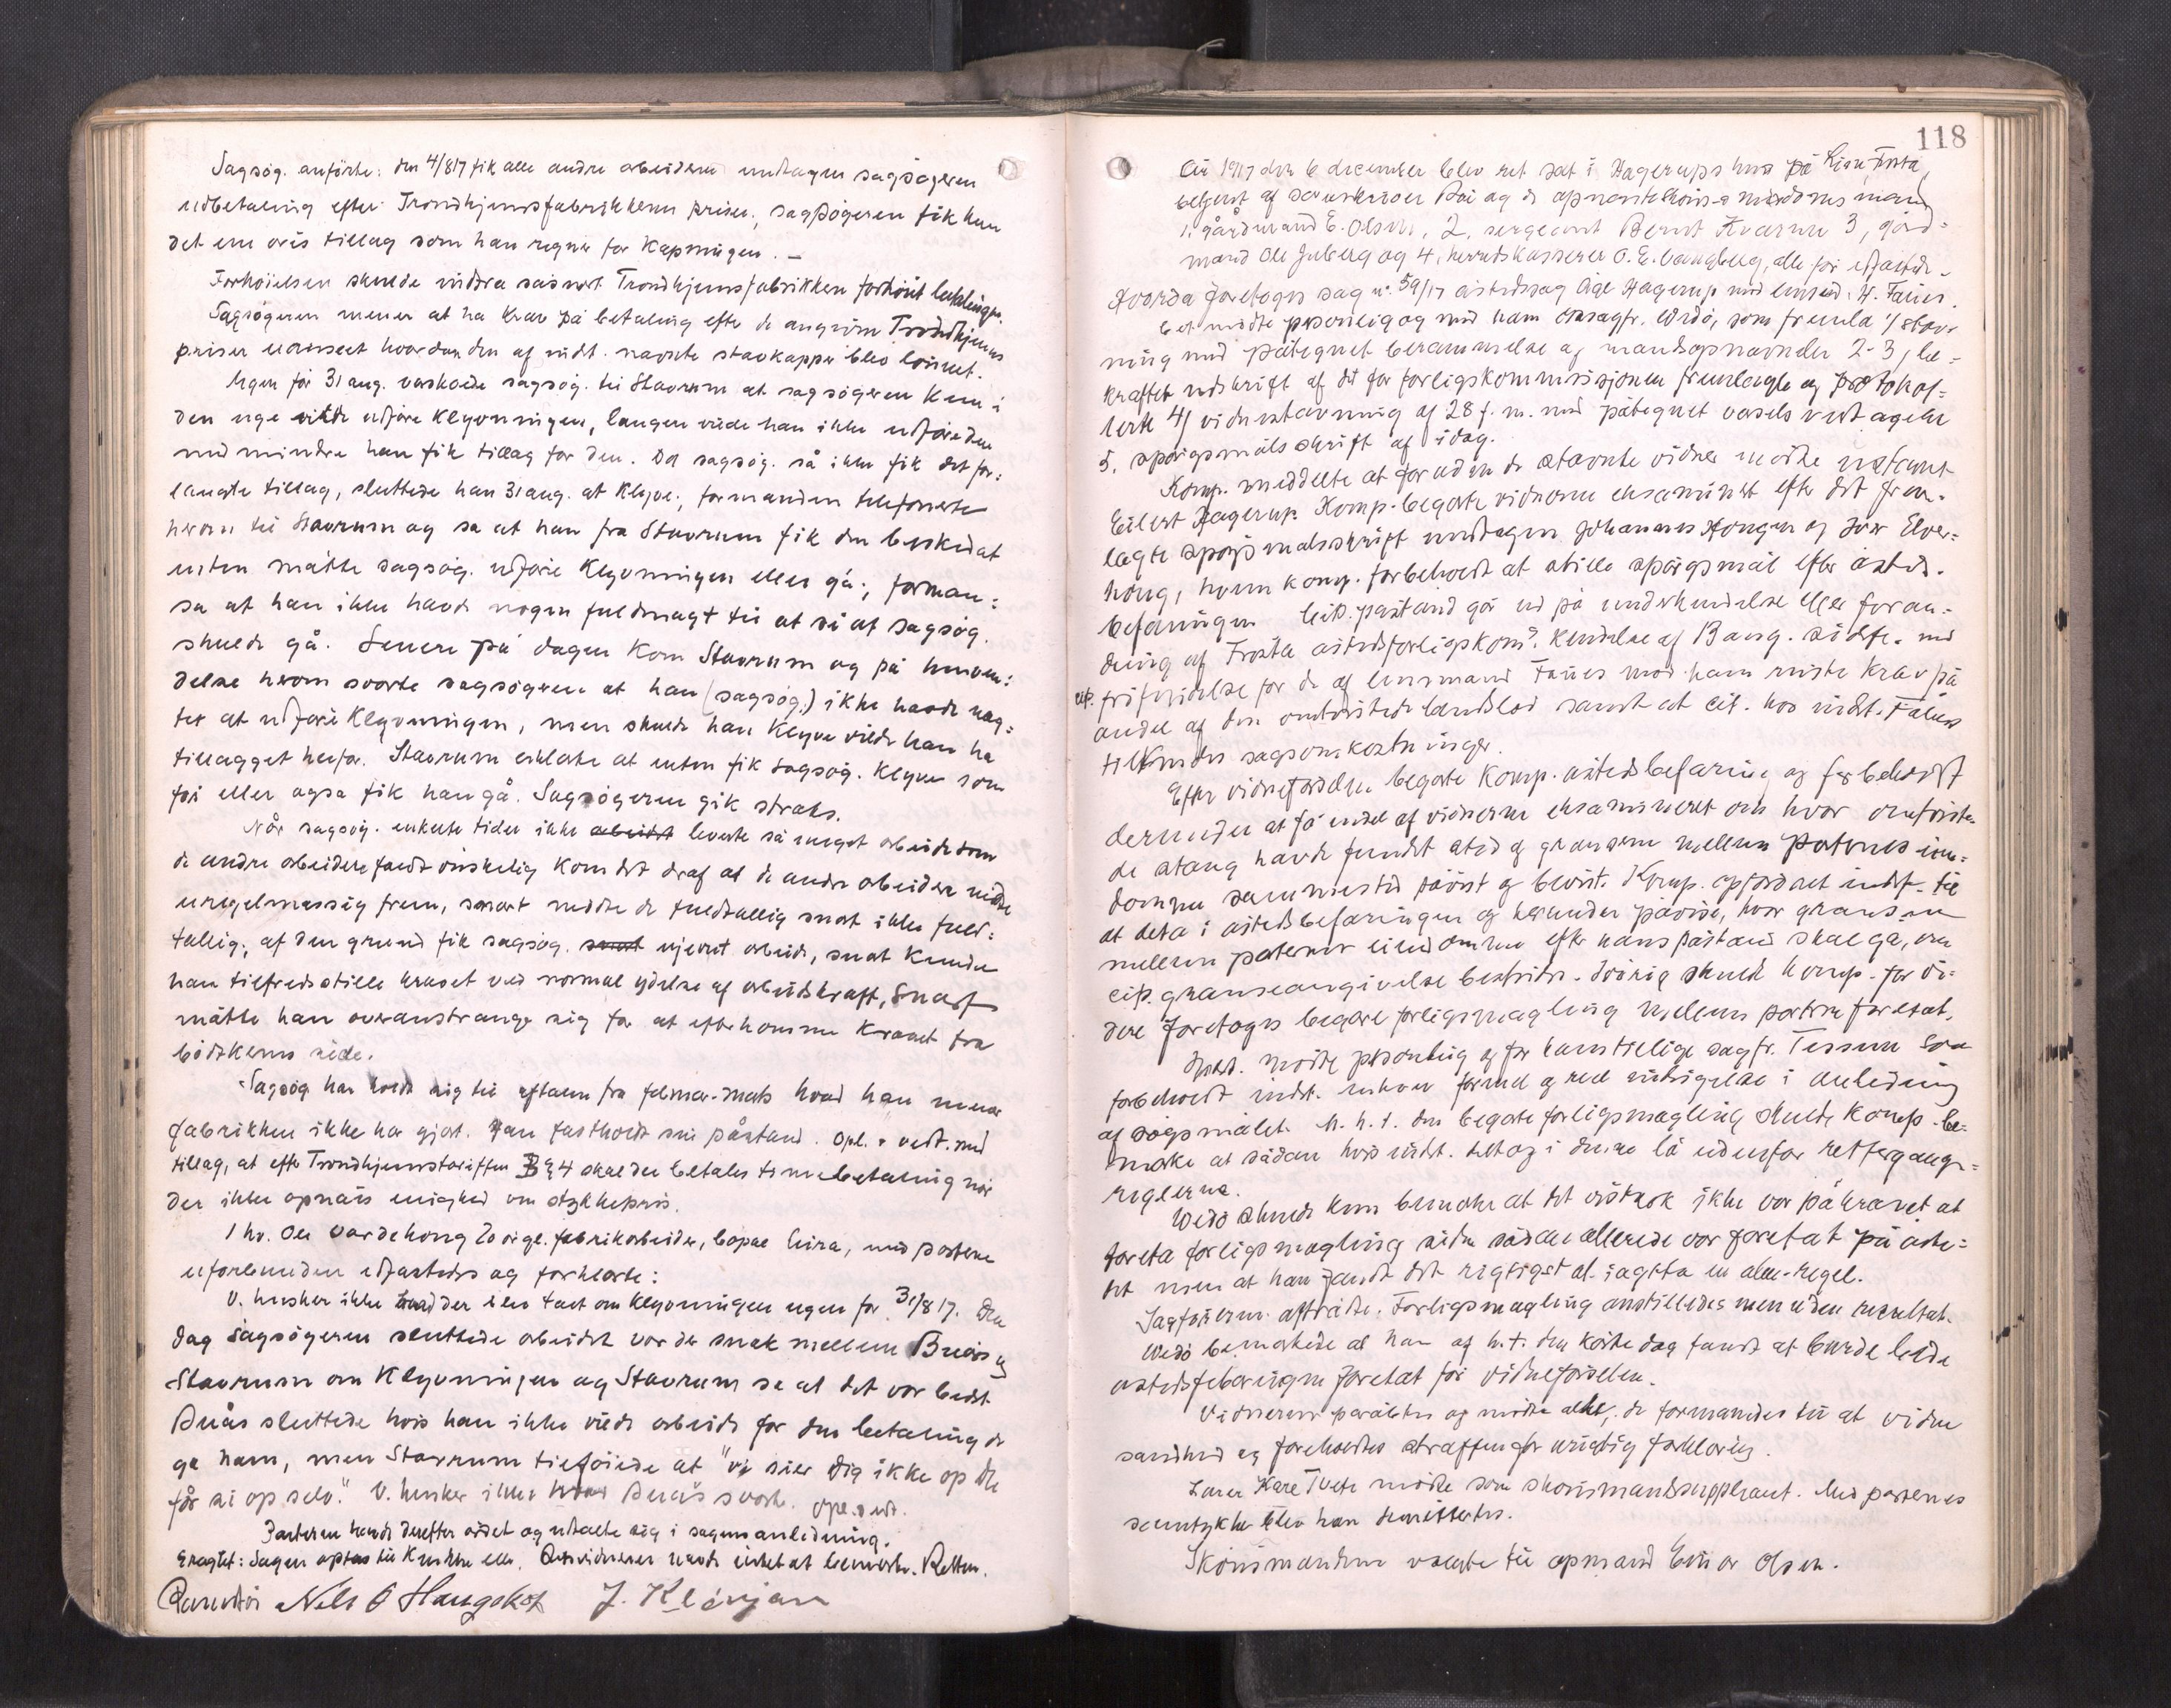 Sagsøg. anførte: den 4/8 17 fik alle andre arbeidere undtagen sagsøgeren
udbetaling efter Trondhjemsfabrikkens priser, sagsøgeren fik kun
det ene øres tillæg som han regner for kapningen. –
Forhøielsen skulde indtræ såsnart Trondhjemsfabrikken forhøiet
Sagsøgeren mener at ha krav på betaling efter de angivne Trondhjems
priser uanseet hvordan den af indst. nævnte stavkapper blev lønnet.
Ugen før 31 aug. varskoede sagsøg. til Stavrum at sagsøgeren kun i
den uge vilde utføre klyvningen, længer vilde han ikke utføre den
medmindre han fik tillæg for den. Da sagsøg. så ikke fik det for:
langte tillæg, sluttede han 31 aug. at klyve; formanden telefonerte
herom til Stavrum og sa at han fra Stavrum fik den besked at
enten måtte sagsøg. utføre klyvningen eller gå; forman:
sa at han ikke havde nogen fuldmagt til at si at sagsøg.
skulde gå. Senere på dagen kom Stavrum og på henven:
delse herom svarte sagsøgeren at han (sagsøg.) ikke havde næg:
tet at utføre klyvningen, men skulde han klyve vilde han ha
tillægget herfor. Stavrum erklærte at enten fik sagsøg. klyve som
før eller også fik han gå. Sagsøgeren gik straks.
Når sagsøg. enkelte tider ikke arbeidet leverte så meget arbeide som
de andre arbeidere fandt ønskelig kom det deraf at de andre arbeidere mødte
uregelmæssig frem, snart mødte de fuldtallig snart ikke fuld:
tallig; af den grund fik sagsøg. snart ujevnt arbeide, snart kunde
han tilfredsstille kravet ved normal ydelse af arbeidskraft, snart
måtte han overanstrænge sig for at efterkomme kravet fra
bødkernes side.
Sagsøg har holdt sig til aftalen fra februar-mars hvad han mener
fabrikken ikke har gjort. Han fastholdt sin påstand. Opl. & vedt. med
tillæg, at efter Trondhjemstariffen B § 4 skal der betales timebetaling når
der ikke opnåes enighed om stykkepris.
1 hv. Ole Vardehaug 20 årgl. fabrikarbeider, bopæl Leira, med parterne
uforbunden edfæstedes og forklarte:
V. husker ikke hvad der blev talt om klyvningen ugen før 31/8 17. Den
dag sagsøgeren sluttede arbeidet var der snak mellem Buås og
Stavrum om klyvningen og Stavrum sa at det var bedst
Buås sluttede hvis han ikke vilde arbeide for den betaling de
ga ham, men Stavrum tilføiede at "vi sier dig ikke op du
får si op selv." V. husker ikke hvad Buås svarte. Opl. vedt.
Parterne havde derefter ordet og uttalte sig i sagens anledning.
Eragtet: Sagen optas til kjendelse eller. Retsvidnerne havde intet at bemerke. Retten.
Nils O Haugskot J. Klévjan
118
År 1917 den 6 december blev ret sat i Hagerups hus på Frosta,
betjent af sorenskriver og de opnævnte skjøns-mødesmænd
1. gårdmand E. Olsen, 2, sergeant Bernt Kvarme 3, gård=
mand Ole Juberg og 4, herredskasserer O. E. Vangberg, alle før edfæstede.
Hvorda foretoges sag nr. 59/17 åstedssag Åge Hagerup mod lensmd. H. Faues.
Cit. mødte personlig og med ham Wedø, som fremla 1/ stæv
ning med påtegnet berammelse og mandsopnævnelse 2-3, be=
kræftet udskrift af det for forligskommissionen fremlagte og protokol=
lerte 4/ vidnestævning af 28 f. m. med påtegnet vasels vedtagelse
5, spørgsmålsskrift af idag.
Komp. meddelte at foruden de stævnte vidner mødte ustævnt
Eilert Hagerup. Komp. begærte vidnerne eksaminert efter det frem=
lagte spørgsmålsskrift undtagen Johannes Haugen og Elver=
høug, hvem komp. forbeholdt at stille spørgsmål efter åsteds=
befaringen. Cit. påstand går ud på underkjendelse eller foran=
dring af Frosta åstedsforligskoms. kjendelse af
cit. frifindelse for de af lensmand Faues mod ham reiste krav på
andel af den omtvistede landslod samt at cit. hos indst. Faues
tilkjendes sagsomkostninger.
Efter vidneførselen begærte komp. åstedsbefaring og forbeholdt
derunder at få endel af vidnerne eksamineret om hvor omtviste
de stang havde fundet sted og grænsen mellem partenes eien=
domme sammesteds påvist og bevist. Komp. opfordret indst. til
at delta i åstedsbefaringen og herunder påvise, hvor grænsen
mellem parternes eiendomme efter hans påstand skal gå, om
cit. grænseangivelse bestrides. Iøvrig skulde komp. før vi=
dere foretoges begjære forligsmægling mellem parterne foretat.
Indst. mødte personlig og for ham tillige sagfr. Tessem som
forbeholdt indst. enhver formel og reel indsigelse i anledning
af søgsmålet. M. h. t. den begærte forligsmægling skulde komp. be=
merke at sådan hvis indst. deltog i denne lå udenfor rettergangs=
reglerne.
Wedø skulde kun bemerke at det vistnok ikke var påkrævet at
foreta forligsmægling siden sådan allerede var foretat på åste=
det men at han fandt det rigtigst at iagtta en alm. regel.
Sagførerne aftrådte. Forligsmægling anstilledes men uden resultat.
Wedø bemerkede at han af h. t. den korte dag fandt at burde bede
åstedsbefaringen foretat før vidneførselen.
Vidnerne påråbtes og mødte alle; de formanedes til at vidne
sandhed og foreholdtes straffen for urigtig forklaring.
Lærer Kåre Tvete mødte som skjønsmandssuppleant. Med partenes
samtykke blev han demitteret.
Skjønsmændene valgte til opmand Einar Olsen.